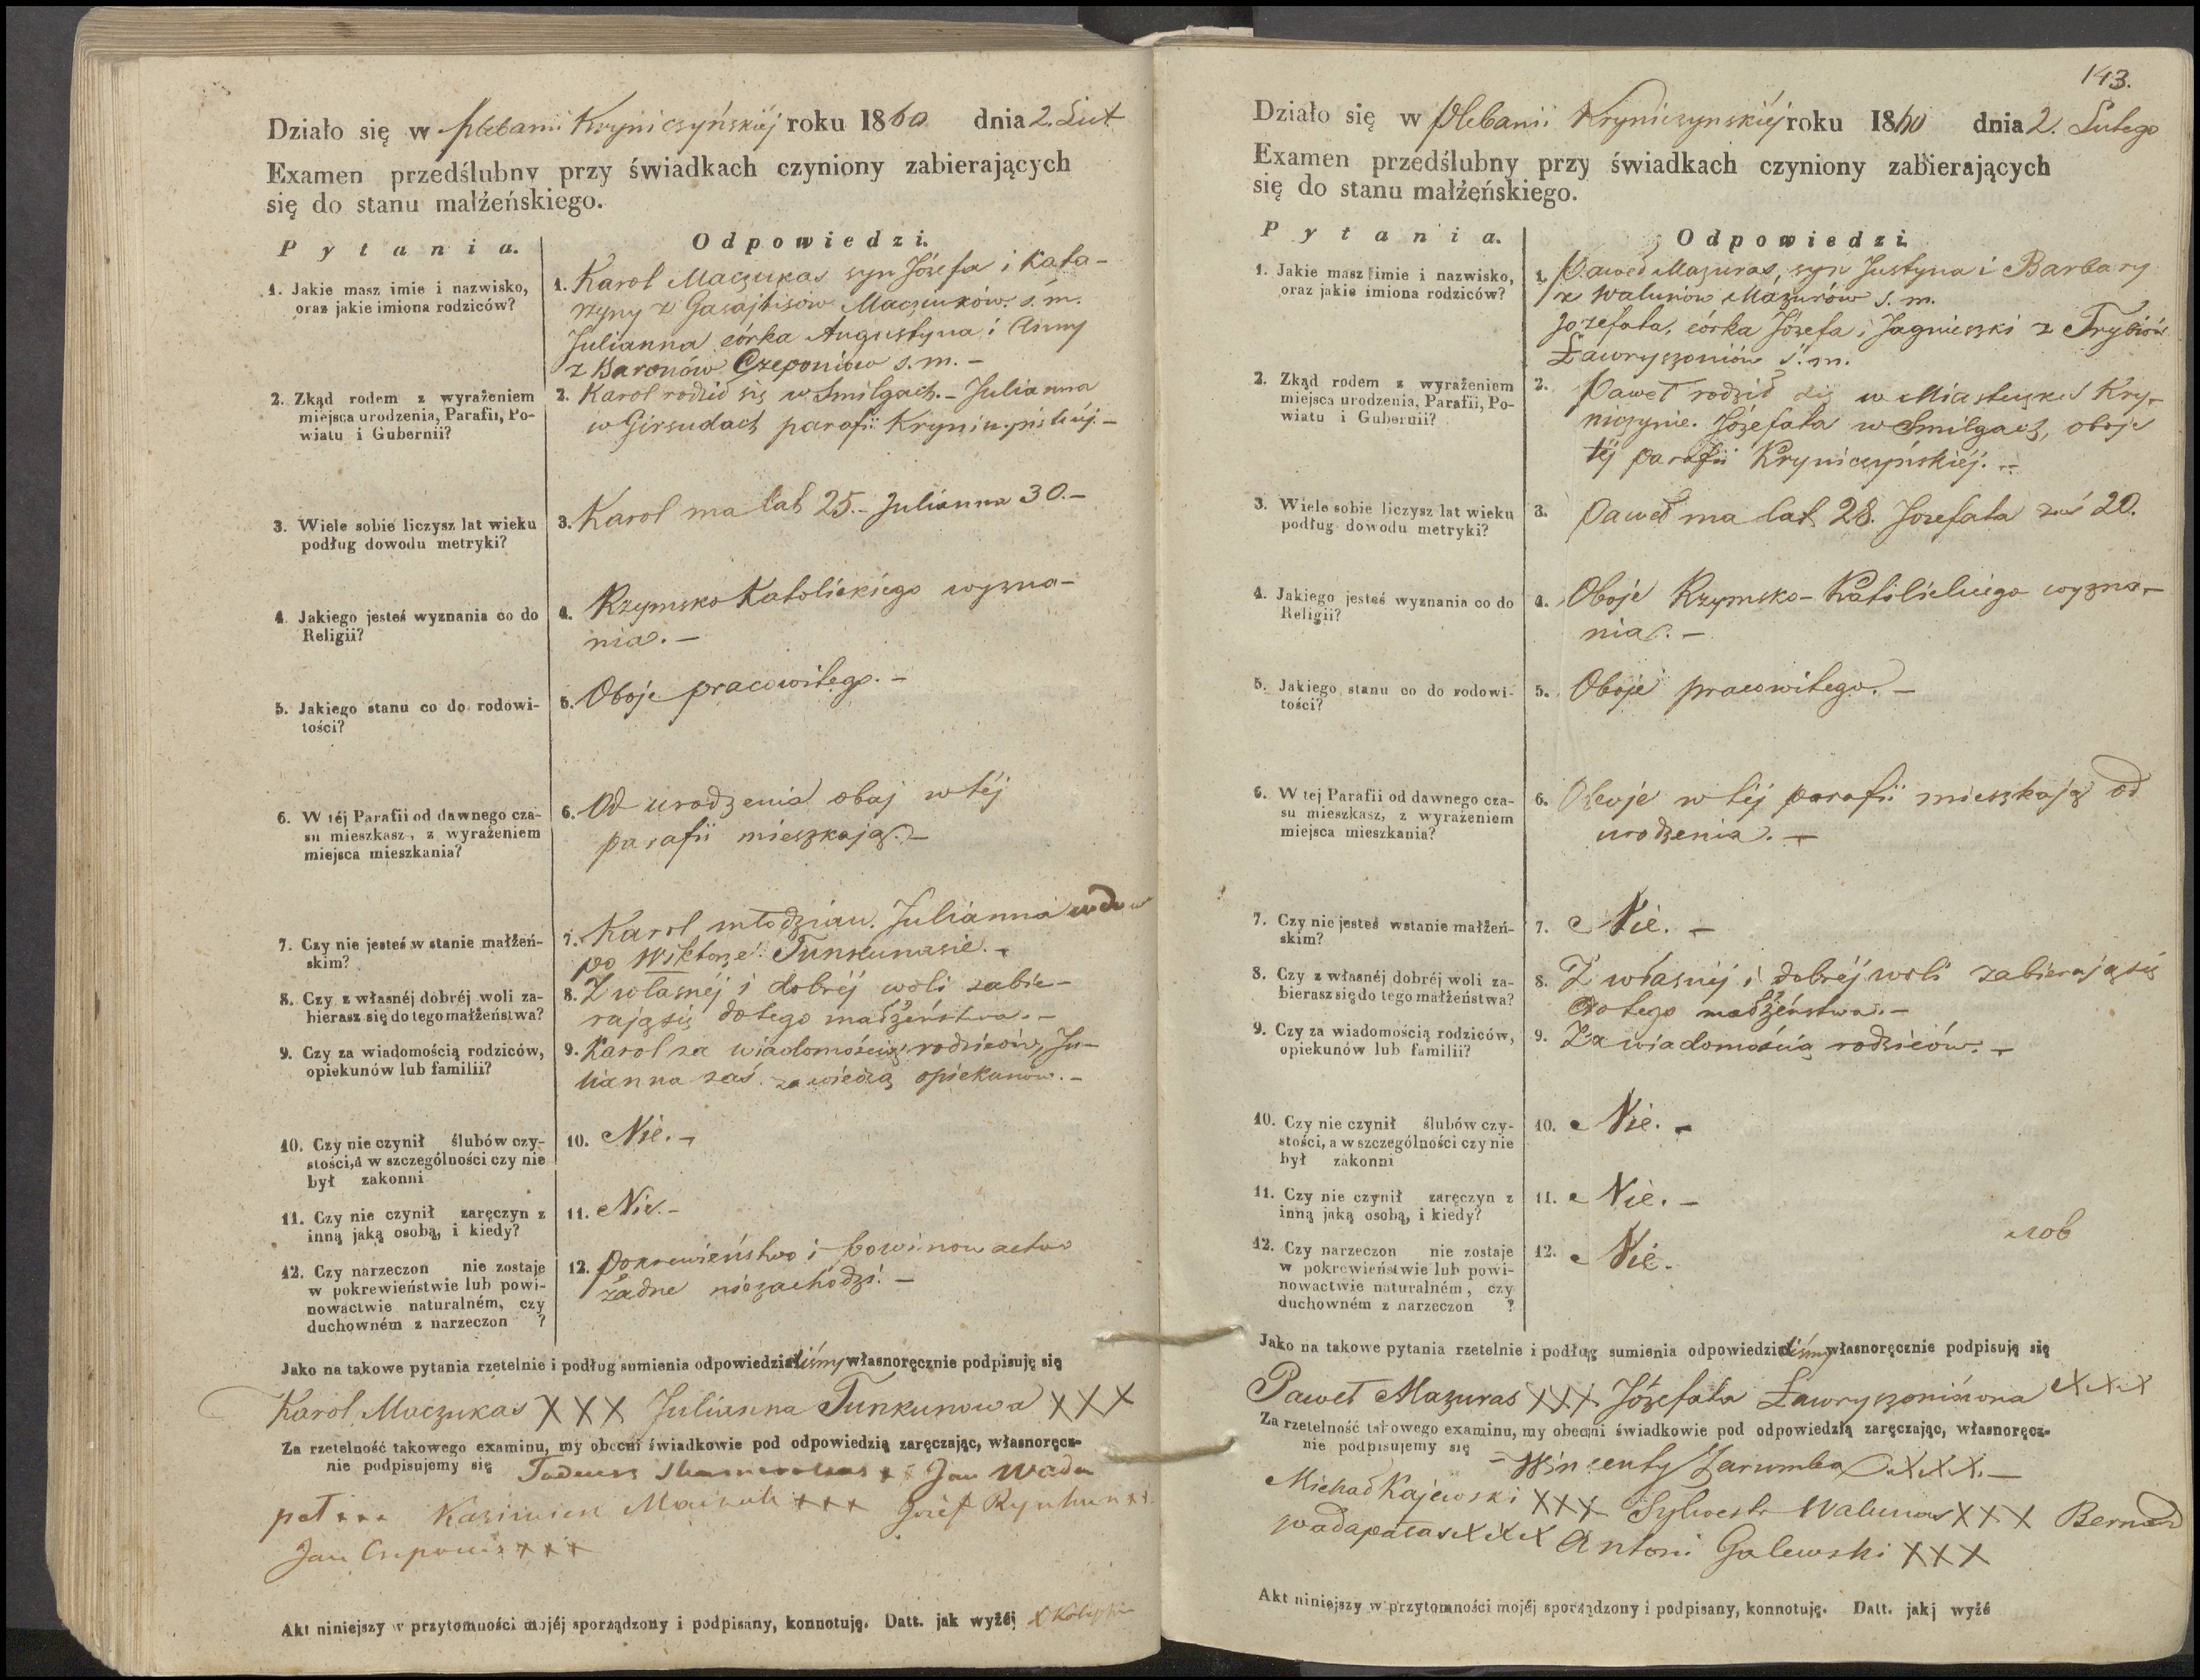 Działo się w plebanii Kryniczyńskiéj roku 1860 dnia 2. Lut
Examen przedślubny przy świadkach czyniony zabierających
się do stanu małżeńskiego.
Pytania.
Odpowiedzi.
1. Jakie masz imie i nazwisko,
oraz jakie imiona rodziców?
1. Karol Maczukas syn Józefa i Kata-
rzyny z Gasajtisów Maczuków s. m.
Julianna córka Augustyna i Anny
z Baronów Czeponiów s. m. –
2. Zkąd rodem z wyrażeniem
miejsca urodzenia, Parafii, Po-
wiatu i Gubernii?
2. Karol rodził się w Smilgach. – Julianna
w Girsudach parafii Kryniczyńskiéj. –
3. Wiele sobie liczysz lat wieku
podług dowodu metryki?
3. Karol ma lat 25. – Julianna 30. –
4 Jakiego jesteś wyznania co do
Religii?
4. Rzymsko Katolickiego wyzna-
nia. –
5. Jakiego stanu co do rodowi-
tości?
5. Oboje pracowitego. –
6. W téj Parafii od dawnego cza-
su mieszkasz, z wyrażeniem
miejsca mieszkania?
6. Od urodzenia obaj w téj
parafii mieszkają. –
7. Czy nie jesteś w stanie małżeń-
skim?
7. Karol młodzian. Julianna wdow
po Wiktorze Tunkunasie. –
8. Czy z własnéj dobréj woli za-
bierasz się do tego małżeństwa?
8. Z własnéj i dobréj woli zabie-
rają się do tego małżeństwa. –
9. Czy za wiadomością rodziców,
opiekunów lub familii?
9. Karol za wiadomością rodziców, Ju-
lianna zaś za wiedzą opiekunów. –
10. Czy nie czynił ślubów czy-
stości, a w szczególności czy nie
był zakonni
10. Nie. –
11. Czy nie czynił zaręczyn z
inną jaką osobą, i kiedy?
11. Nie. –
12. Czy narzeczon nie zostaje
w pokrewieństwie lub powi-
nowactwie naturalném, czy
duchowném z narzeczon ?
12. Pokrewieństwo i powinowactwo
żadne niezachodzi. –
Jako na takowe pytania rzetelnie i podług sumienia odpowiedzieliśmy własnoręcznie podpisuję się
Karol Maczukas XXX Julianna Tunkunowa XXX
Za rzetelność takowego examinu, my obecni świadkowie pod odpowiedzią zaręczając, własnoręcz-
nie podpisujemy się Tadeusz Jan Wada
pat +++ Kazimierz +++ Józef
Jan Czeponis +++
Akt niniejszy w przytomności mojéj sporządzony i podpisany, konnotuję. Datt. jak wyżéj
143.
Działo się w Plebanii Kryniczynskiéj roku 1860 dnia 2. Lutego
Examen przedślubny przy świadkach czyniony zabierających
się do stanu małżeńskiego.
Pytania.
Odpowiedzi
1. Jakie masz imie i nazwisko,
oraz jakie imiona rodziców?
1. Paweł Mazuras, syn Justyna i Barbary
z Walunów Mazurów s. m.
Jozefata, córka Józefa i Jagnieszki z Trybiów
Ławryszoniów s. m.
2. Zkąd rodem z wyrażeniem
miejsca urodzenia, Parafii, Po-
wiatu i Gubernii?
2. Paweł rodził się w Miasteczku Kry-
niczynie. Józefata w Smilgach, oboje
téj parafii Kryniczyńskiéj. –
3. Wiele sobie liczysz lat wieku
podług dowodu metryki?
3. Paweł ma lat 28. Jozefata zaś 20.
4. Jakiego jesteś wyznania co do
Religii?
4. Oboje Rzymsko-Katolickiego wyzna-
nia. –
5. Jakiego stanu co do rodowi-
tości?
5. Oboje pracowitego. –
6. W tej Parafii od dawnego cza-
su mieszkasz, z wyrażeniem
miejsca mieszkania?
6. Oboje w téj parafii mieszkają od
urodzenia. –
7. Czy nie jesteś wstanie małżeń-
skim?
7. Nie. –
8. Czy z własnéj dobréj woli za-
bierasz się do tego małżeństwa?
8. Z własnéj i dobréj woli zabierają się
do tego małżeństwa. –
9. Czy za wiadomością rodziców,
opiekunów lub familii?
9. Za wiadomością rodziców. –
10. Czy nie czynił ślubów czy-
stości, a w szczególności czy nie
był zakonni
10. Nie. –
11. Czy nie czynił zaręczyn z
inną jaką osobą, i kiedy?
11. Nie. –
12. Czy narzeczon nie zostaje
w pokrewieństwie lub powi-
nowactwie naturalném, czy
duchowném z narzeczon ?
12. Nie.
Jako na takowe pytania rzetelnie i podług sumienia odpowiedzieliśmy własnoręcznie podpisuję się
Paweł Mazuras XXX Józefata Ławryszoniówna XXX
Za rzetelność takowego examinu, my obecni świadkowie pod odpowiedzią zaręczając, własnoręcz-
nie podpisujemy się – Wincenty Zarumba XXX. –
Michał Kajewski XXX Sylwestr Walunas XXX Bernard
Wadapalas XXX Antoni Galewski XXX
Akt niniejszy w przytomności mojéj sporządzony i podpisany, konnotuję. Datt. jakj wyżé